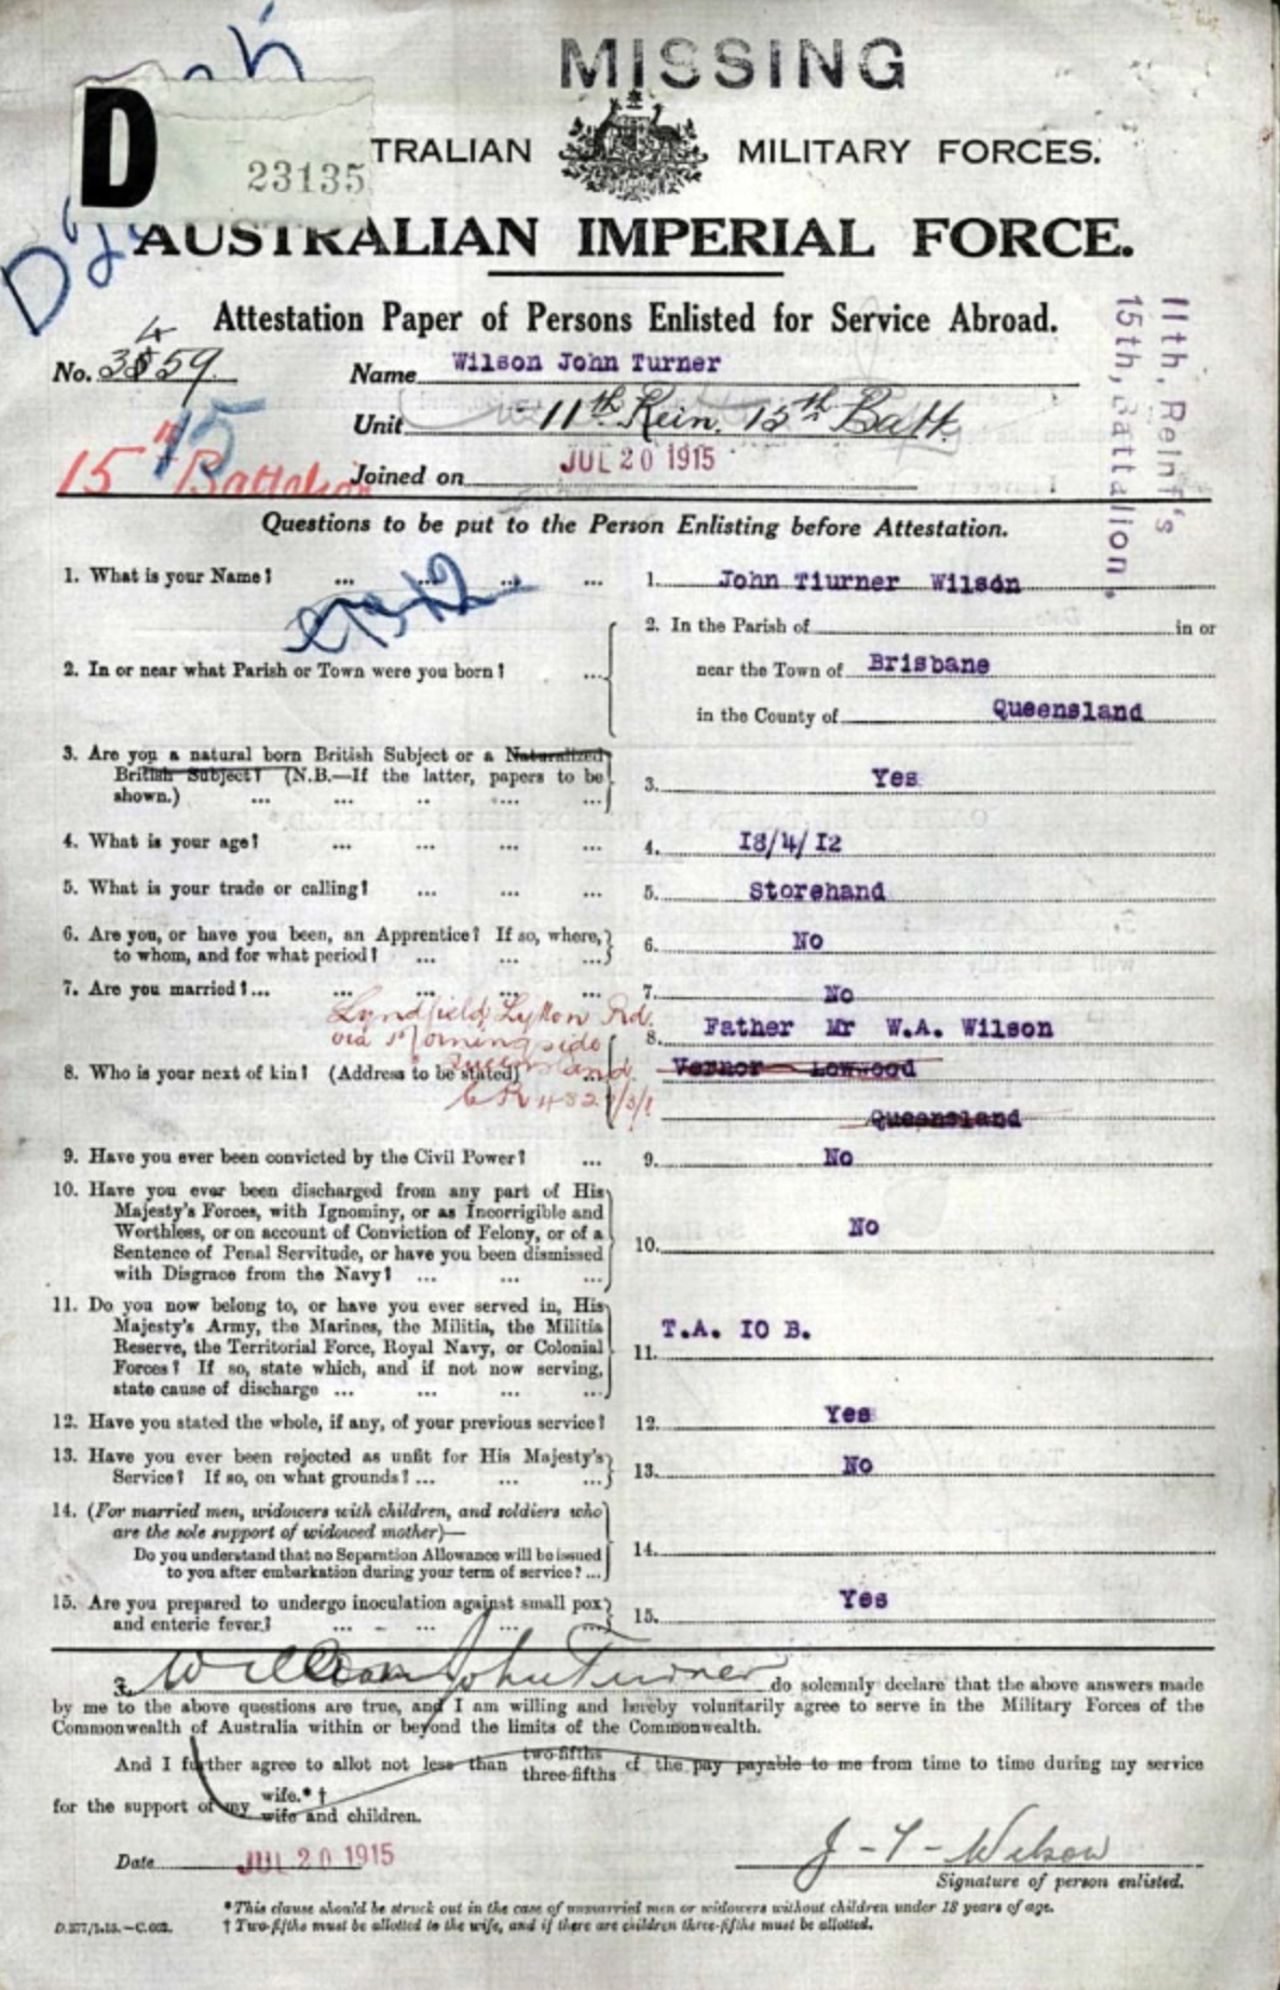 MISSING
D
23135
TRALIAN MILITARY FORCES.
AUSTRALIAN IMPERIAL FORCE.
Attestation Paper of Persons Enlisted for Service Abroad.
11th, Reinf's
15th, Battalion.
No. 3459
Name Wilson John Turner
Unit 11th Rein. 15th Batt.
15th Battalion
15
Joined on JUL 20 1915
Questions to be put to the Person Enlisting before Attestation.
1. What is your Name? ... ... ... ... 1. John Tiurner Wilson
2. In or near what Parish or Town were you born? ... 2. In the Parish of in or
near the Town of Brisbane
in the County of Queensland
3. Are you a natural born British Subject or a Naturalized
British Subject? (N.B.—If the latter, papers to be
shown.) ... ... .. ... ... 3. Yes
4. What is your age? ... ... ... ... 4. 18/4/12
5. What is your trade or calling? ... ... ... 5. Storehand
6. Are you, or have you been, an Apprentice? If so, where,
to whom, and for what period? ... ... ... 6. No
7. Are you married? ... ... ... ... ... 7. No
Lyndfield, Lytton Rd.
via Morningside
Queensland
8. Who is your next of kin? (Address to be stated) ... 8. Father Mr W.A. Wilson
Vernor Lowwood
Queensland
9. Have you ever been convicted by the Civil Power? ... 9. No
10. Have you ever been discharged from any part of His
Majesty's Forces, with Ignominy, or as Incorrigible and
Worthless, or on account of Conviction of Felony, or of a
Sentence of Penal Servitude, or have you been dismissed
with Disgrace from the Navy? ... ... ... 10. No
11. Do you now belong to, or have you ever served in, His
Majesty's Army, the Marines, the Militia, the Militia
Reserve, the Territorial Force, Royal Navy, or Colonial
Forces? If so, state which, and if not now serving,
state cause of discharge ... ... ... ... 11. T.A. 10 B.
12. Have you stated the whole, if any, of your previous service? 12. Yes
13. Have you ever been rejected as unfit for His Majesty's
Service? If so, on what grounds? ... ... ... 13. No
14. (For married men, widowers with children, and soldiers who
are the sole support of widowed mother)—
Do you understand that no Separation Allowance will be issued
to you after embarkation during your term of service? ... 14.
15. Are you prepared to undergo inoculation against small pox
and enteric fever? ... ... ... ... 15. Yes
I, John Turner do solemnly declare that the above answers made
by me to the above questions are true, and I am willing and hereby voluntarily agree to serve in the Military Forces of the
Commonwealth of Australia within or beyond the limits of the Commonwealth.
And I further agree to allot not less than two-fifths three-fifths of the pay payable to me from time to time during my service
for the support of my wife.*† wife and children.
Date JUL 20 1915
J-T-Wilson
Signature of person enlisted.
*This clause should be struck out in the case of unmarried men or widowers without children under 18 years of age.
† Two-fifths must be allotted to the wife, and if there are children three-fifths must be allotted.
D.277/1.15.—C.602.